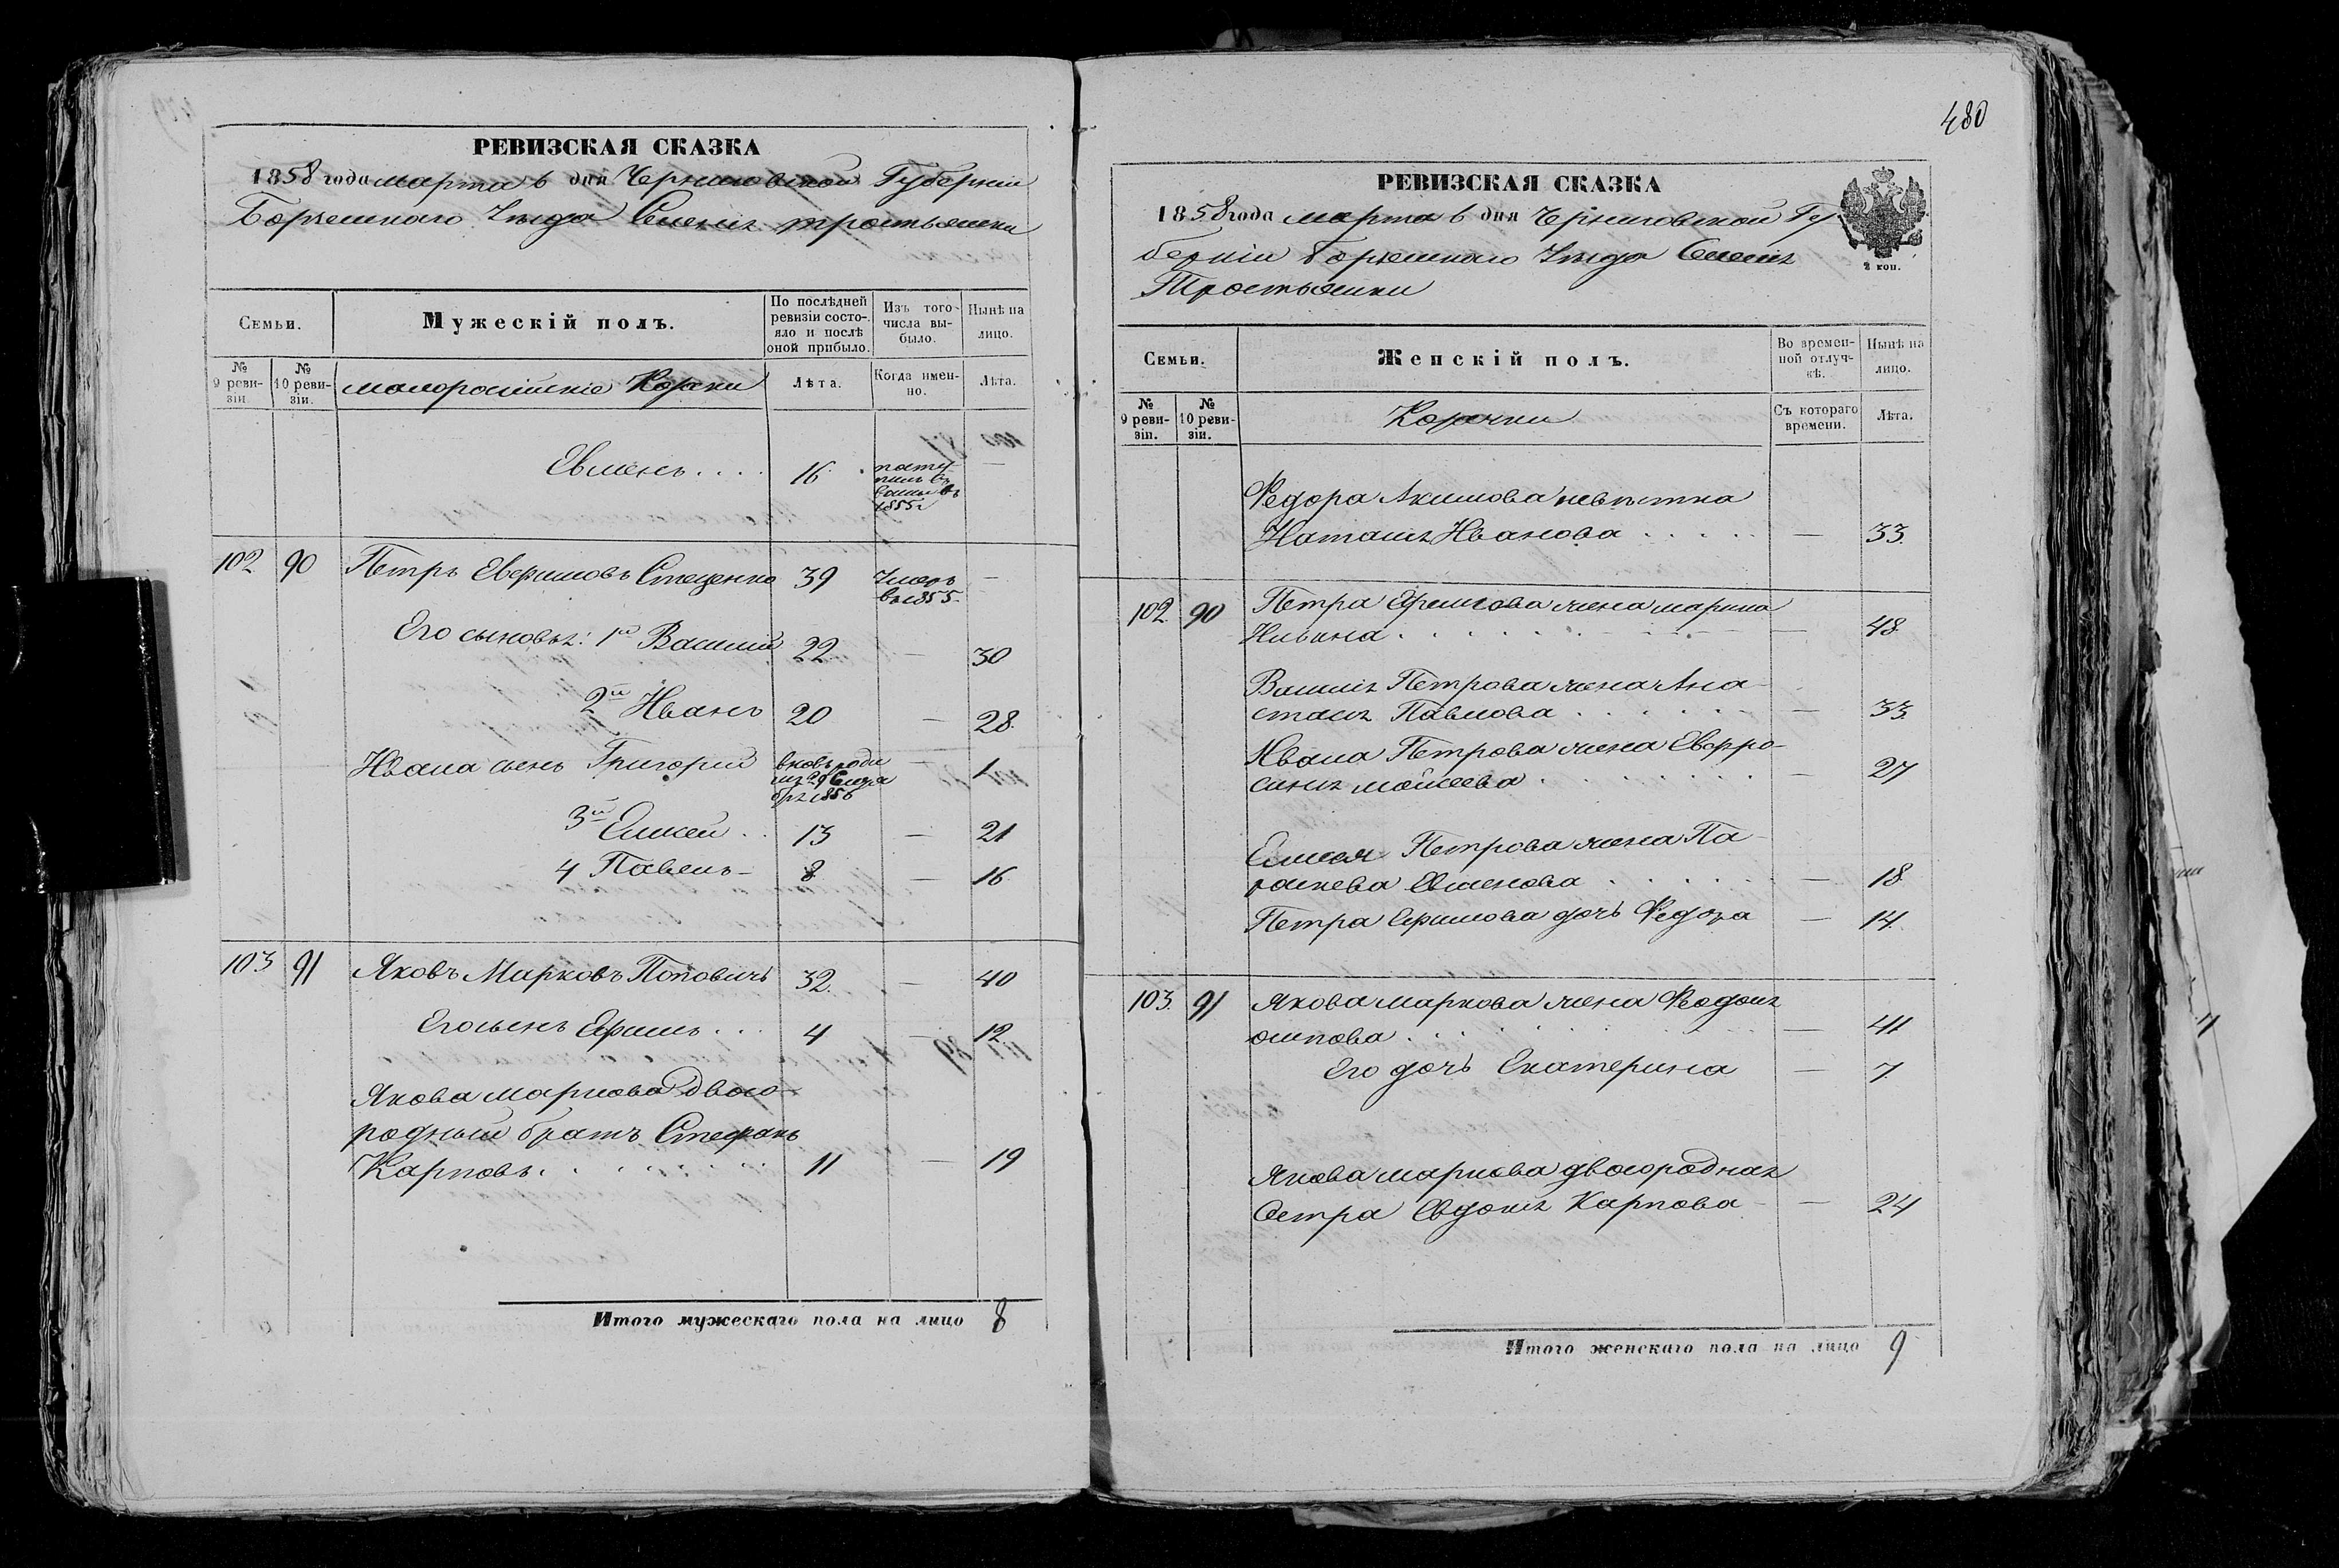 480
РЕВИЗСКАЯ СКАЗКА
1858 года марта 6 дня Черниговской Губерніи
Борзенскаго Уезда Селенія тростьянки
Семьи.
Мужескій полъ.
По послѣдней ревизіи состояло и послѣ оной прибыло.
Изъ того числа выбыло.
Нынѣ на лицо.
№ 9 ревизіи.
№ 10 ревизіи.
малоросійскіе Козаки
Лѣта.
Когда именно.
Лѣта.
Евменъ . . . . 16 посту
пилъ въ
въ
1855 г —
102 90 Петръ Евфимовъ Стеценко 39 Умеръ
въ 1855. —
Его сыновья: 1й Василий 22 — 30
2й Иванъ 20 — 28.
Ивана сынъ Григорий вновь роди
29
1856 — 1
3й Елисей . . 13 — 21
4 Павелъ — 8 — 16
103 91 Яковъ Марковъ Поповичъ 32. — 40
Его сынъ Ефимъ . . . 4 — 12
Якова маркова двою-
родный братъ Стефанъ
Карповъ . . . . . . . 11 — 19
Итого мужескаго пола на лицо 8
РЕВИЗСКАЯ СКАЗКА
1858 года марта 6 дня Черниговской Гу-
берніи Борзенскаго Уезда Селенія
Тростьянки
2 коп.
Семьи.
Женскій полъ.
Во временной отлучкѣ.
Нынѣ на лицо.
№ 9 ревизіи.
№ 10 ревизіи.
Козачки
Съ котораго времени.
Лѣта.
Федора Акимова невѣстка
Наталія Иванова . . . . . — 33.
102. 90 Петра Ефимова жена марина
Ильина . . . . . . . . — 48.
Василія Петрова жена Ана-
стасія Павлова . . . . . . — 33.
Ивана Петрова жена Евфро-
синія моисеева . . . . . . . — 27
Елисея Петрова жена Па-
раскева Евменова . . . . . . — 18
Петра Ефимова дочь Федора — 14.
103. 91 Якова маркова жена Феодосія
осипова . . . . . . . . — 41
Его дочь Екатерина — 7.
Якова маркова двоюродная
Сестра Евдокія Карпова — 24
Итого женскаго пола на лицо 9